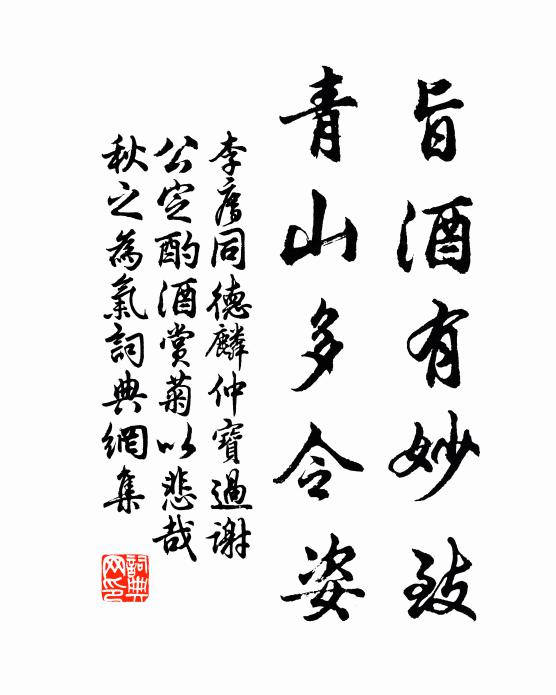 旨酒有妙致
青山多令姿
李廌同德麟仲寶過謝
公定酌酒賞菊以悲哉
秋之為氣詞典網集
詞典網印